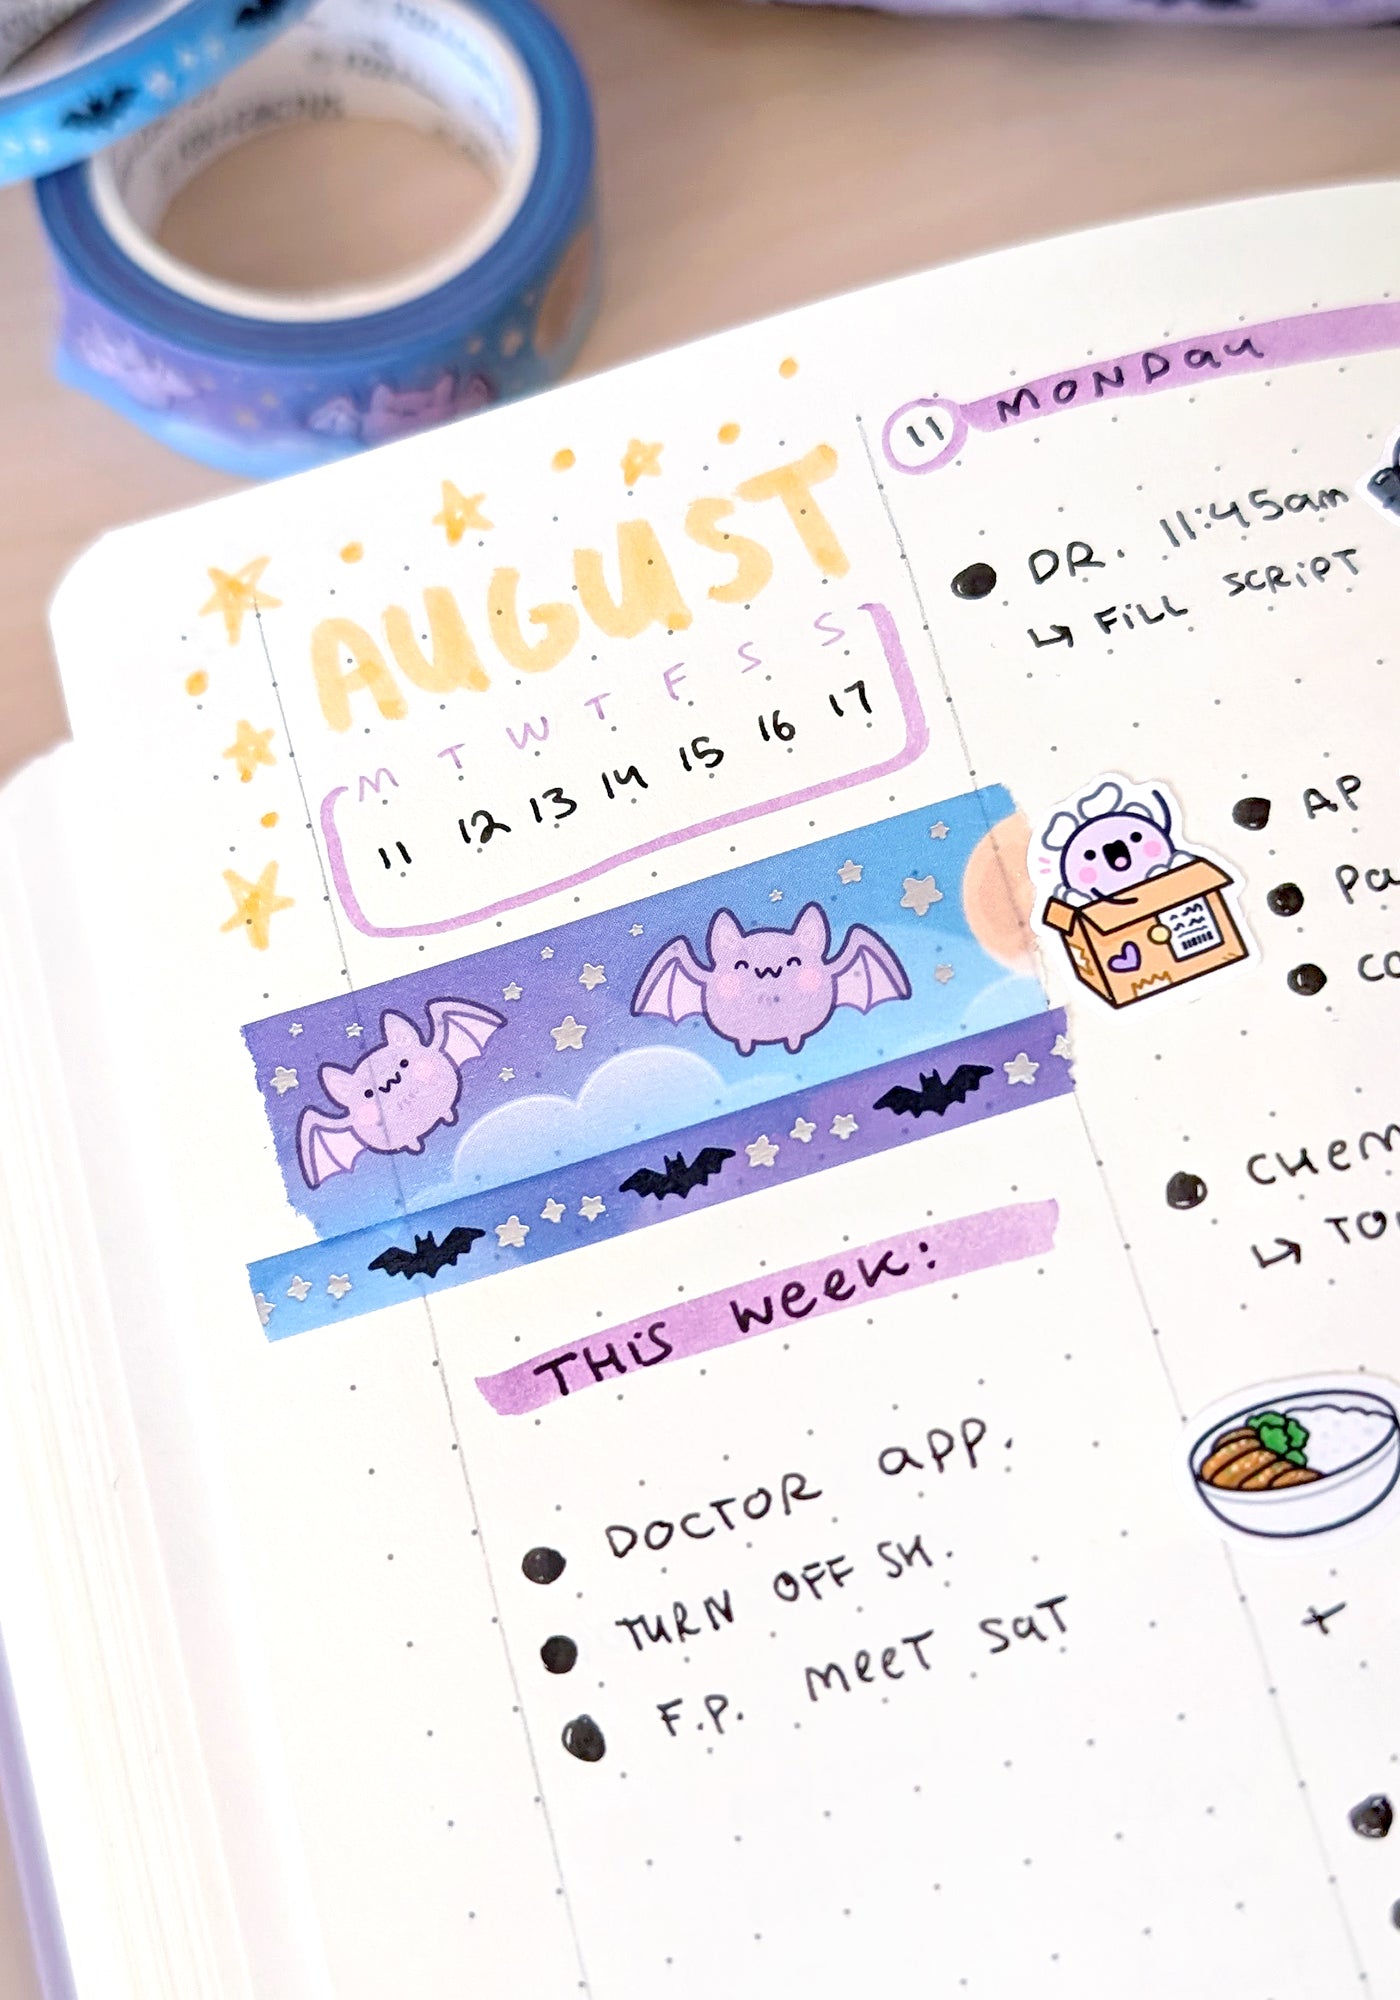 AUGUST
M T W T F S S
11 12 13 14 15 16 17
THiS week:
DOCTOR app.
TURN OFF SH.
F.P. MeeT SaT
11 MONDay
DR. 11:45am
↳ FiLL SCRiPT
AP
Pa
CO
CHem
↳ TO
+